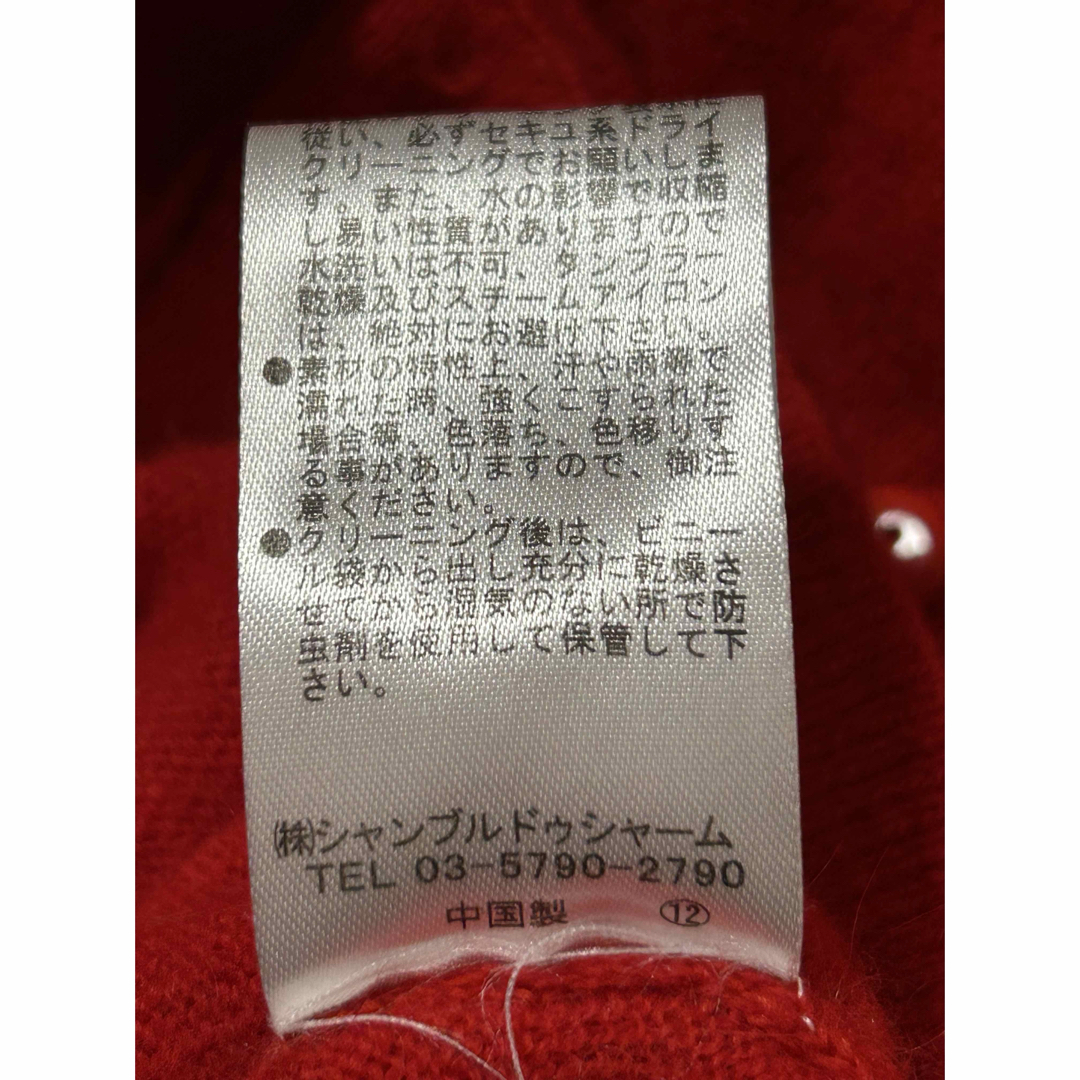 従い、必ずセキユ系ドライ
クリーニングでお願いしま
す。また、水の影響で収縮
し易い性質がありますので
水洗いは不可、タンブラー
乾燥及びスチームアイロン
は、絶対にお避け下さい。
●素材の特性上、汗や雨等で
濡れた時、強くこすられた
場合等、色落ち、色移りす
る事がありますので、御注
意ください。
●クリーニング後は、ビニー
ル袋から出し充分に乾燥さ
せてから湿気のない所で防
虫剤を使用して保管して下
さい。
㈱シャンブルドゥシャーム
TEL 03-5790-2790
中国製 ⑫